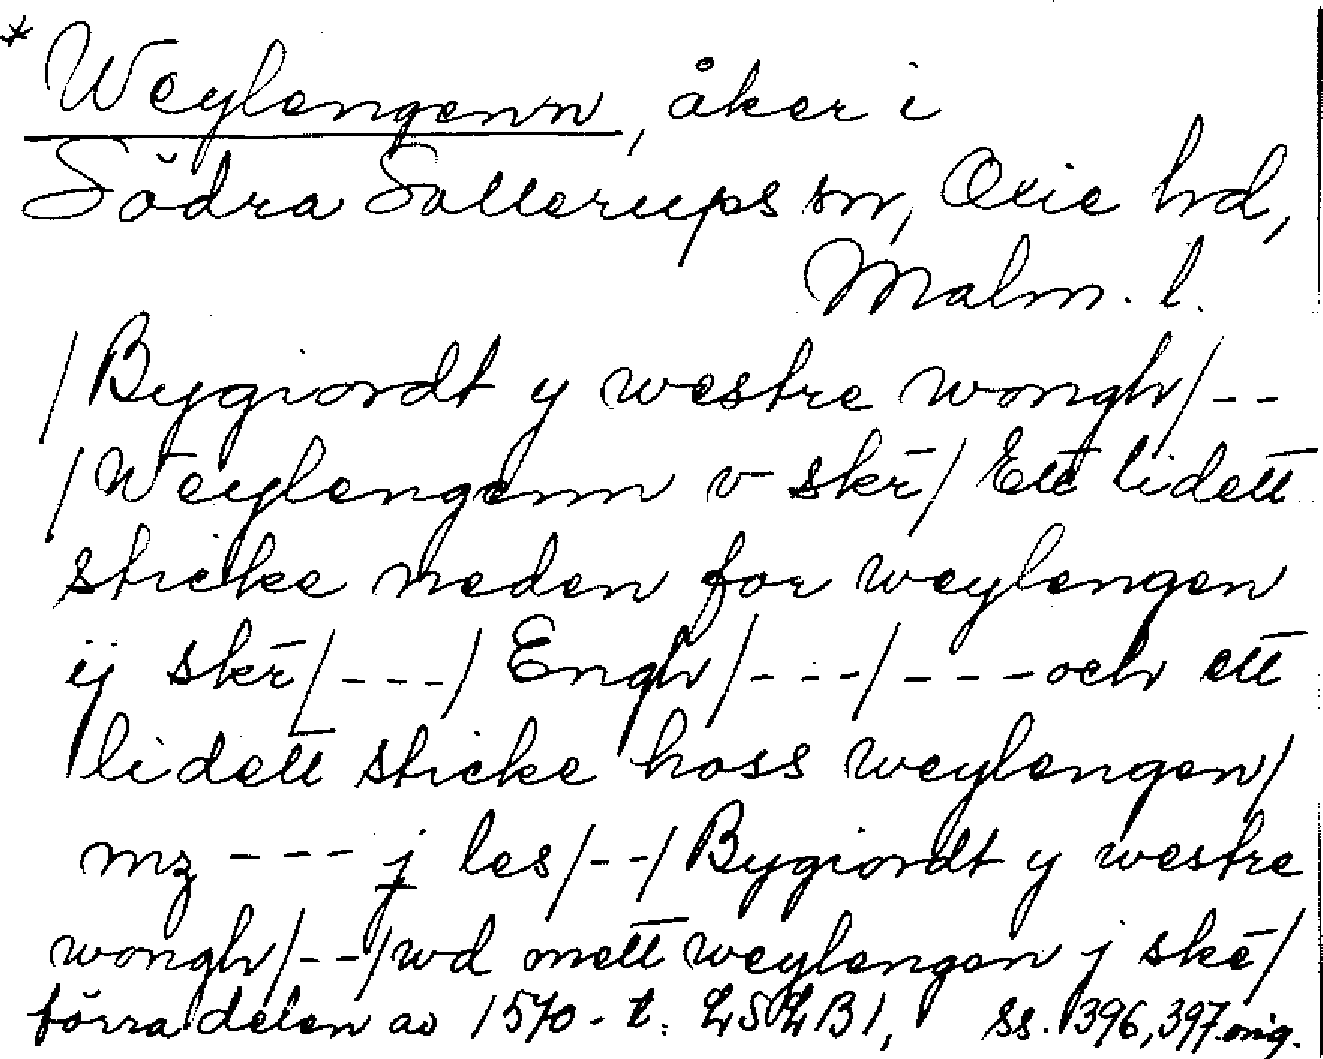 * Weylengenn, åker i
Södra Sallerups sn, Oxie hd,
Malm. l.
/Bygiordt y westre wongh/--
/Weylengenn v skr̄/ Ett lidett
sticke neden for weylengen
ij skr̄/---/Engh/---/---och ett
lidett sticke hoss weylengen/
mz --- j les/--/Bygiordt y westre
wongh/--/wd mett weylengen j ske̅/
förra delen av 1570-t. LSLB1, ss. 396, 397 orig.